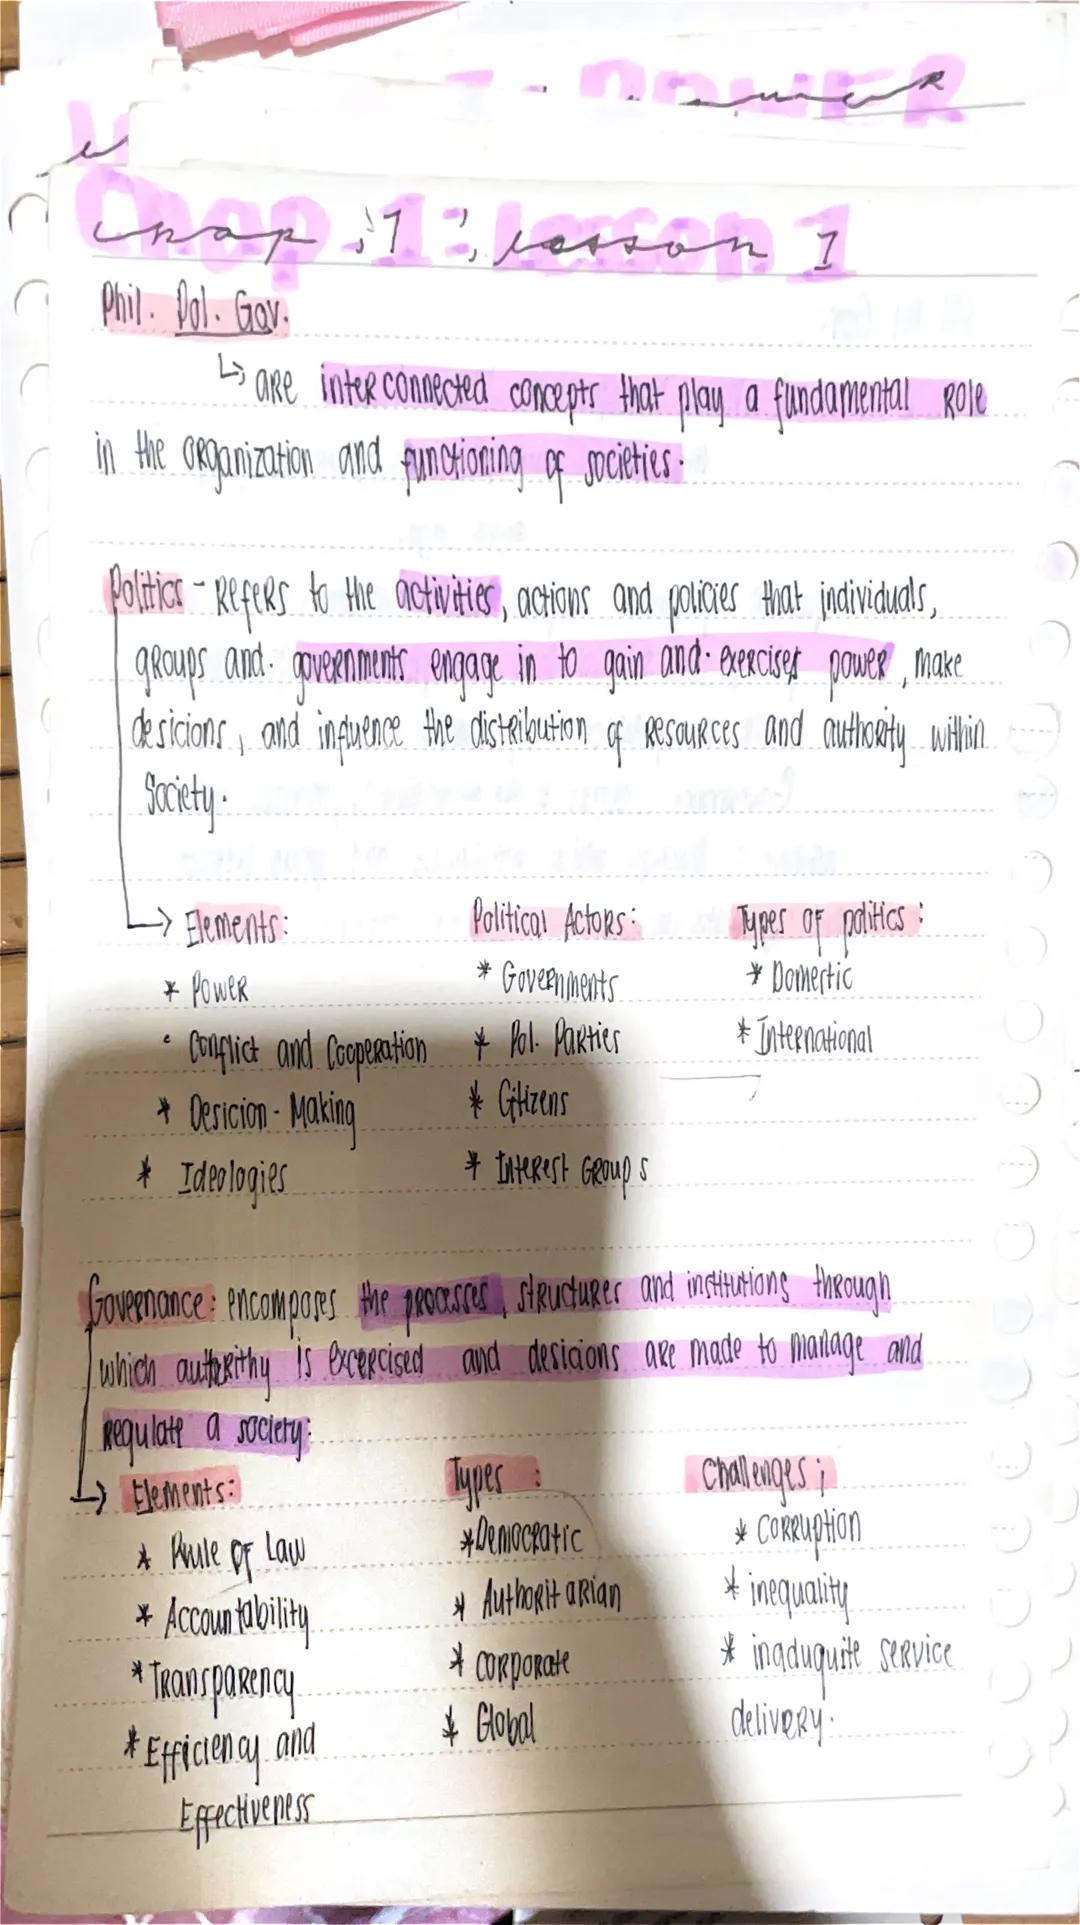 POWER
Chap 1: Lesson 1
Phil. Pol. Gov.
↳ are interconnected concepts that play a fundamental role
in the organization and functioning of societies.
Politics - Refers to the activities, actions and policies that individuals,
groups and governments engage in to gain and exercises power, make
desicions, and influence the distribution of resources and authority within
Society.
→ Elements: Political Actors: Types of politics:
* Power * Governments * Domestic
• Conflict and Cooperation * Pol. Parties * International
* Desicion-Making * Citizens
* Ideologies * Interest Groups
Governance: encomposes the processes, structures and institutions through
which authorithy is excercised and desicions are made to manage and
regulate a society:
→ Elements: Types: Challenges;
* Rule of Law * Democratic * Corruption
* Accountability * Authoritarian * inequality
* Transparency * corporate * inaduquite service
* Efficiency and * Global delivery.
Effectiveness